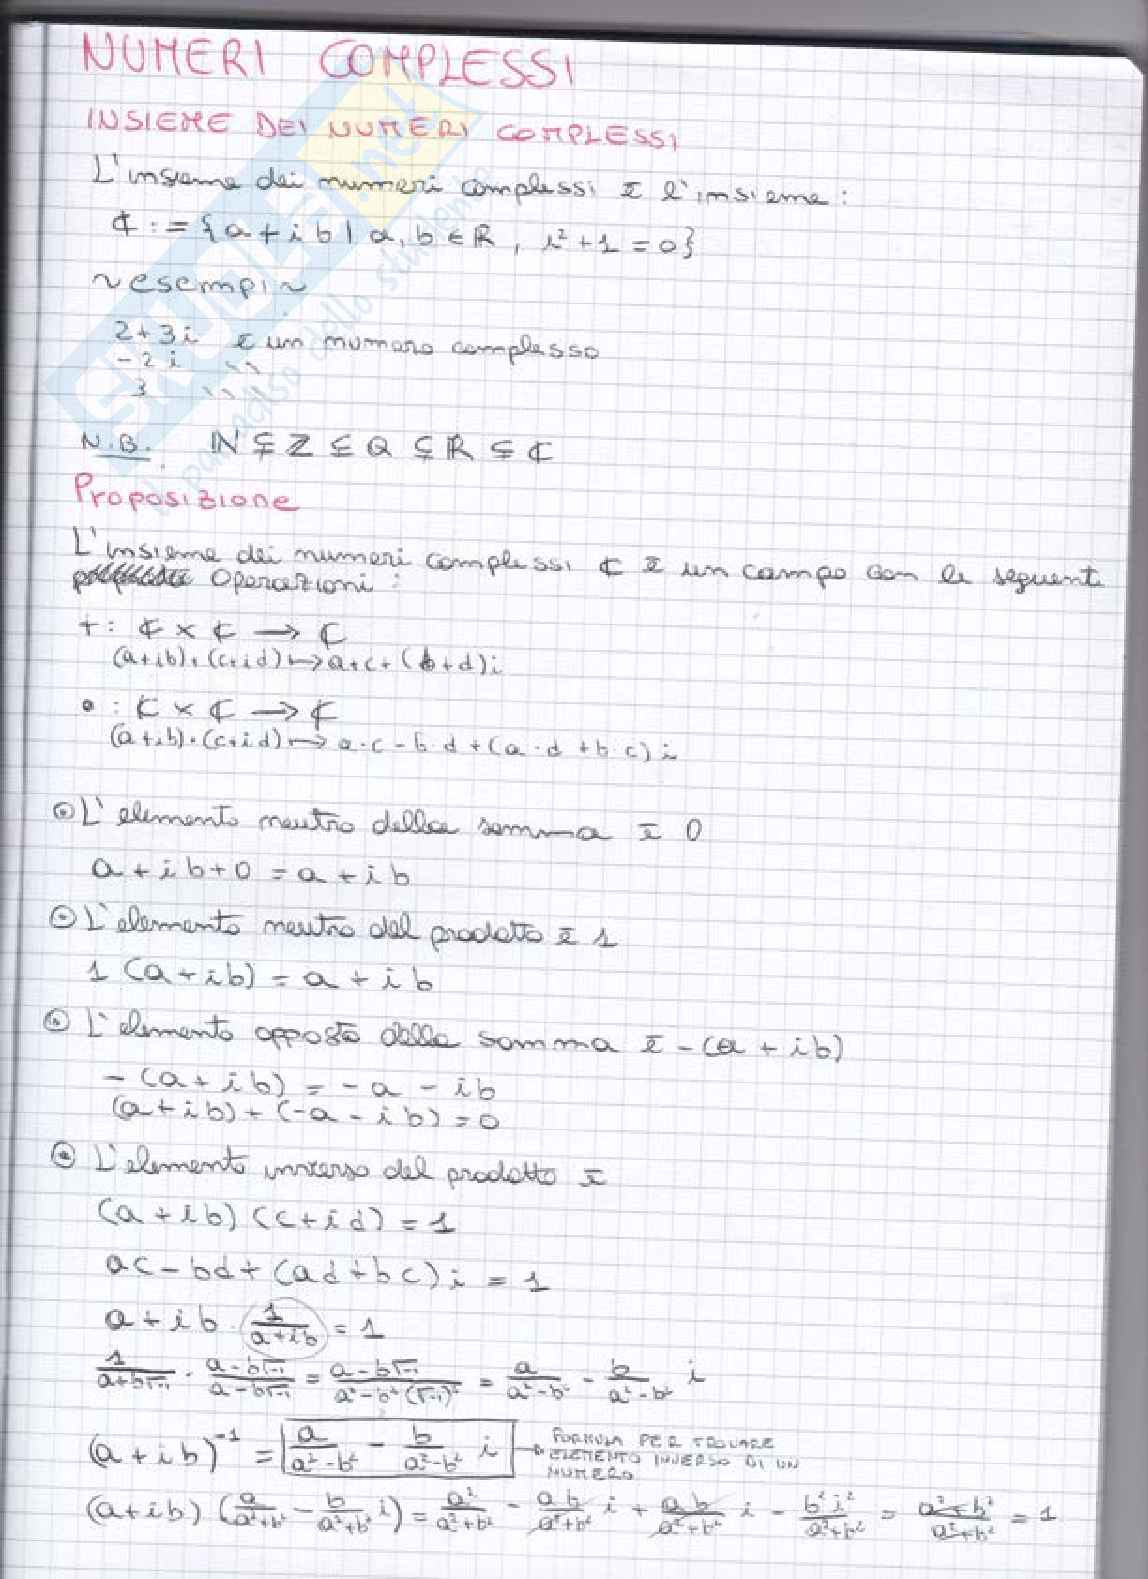 NUMERI COMPLESSI
INSIEME DEI NUMERI COMPLESSI
L'insieme dei numeri complessi è l'insieme:
ℂ := {a + i b | a, b ∈ ℝ, i² + 1 = 0}
~ esempi ~
2 + 3i è un numero complesso
-2i ''
3 ''
N.B. ℕ ⊊ ℤ ⊊ ℚ ⊊ ℝ ⊊ ℂ
Proposizione
L'insieme dei numeri complessi ℂ è un campo con le seguenti
operazioni:
+ : ℂ × ℂ → ℂ
(a+ib)+(c+id) ↦ a+c+(b+d)i
• : ℂ × ℂ → ℂ
(a+ib)•(c+id) ↦ a·c - b·d + (a·d + b·c)i
⊙ L'elemento neutro della somma è 0
a + i b + 0 = a + i b
⊙ L'elemento neutro del prodotto è 1
1 (a + i b) = a + i b
⊙ L'elemento opposto della somma è -(a + i b)
-(a + i b) = -a - ib
(a + i b) + (-a - i b) = 0
⊙ L'elemento inverso del prodotto è
(a + i b) (c + i d) = 1
ac - bd + (ad + bc) i = 1
a + i b · 1/(a+ib) = 1
1/(a+b√-1) · (a-b√-1)/(a-b√-1) = (a-b√-1)/(a²-b²(√-1)²) = a/(a²-b²) - b/(a²-b²) i
(a + i b)⁻¹ = a/(a²-b²) - b/(a²-b²) i → FORMULA PER TROVARE
ELEMENTO INVERSO DI UN
NUMERO
(a+ib) (a/(a²+b²) - b/(a²+b²) i) = a²/(a²+b²) - ab/(a²+b²) i + ab/(a²+b²) i - b²i²/(a²+b²) = (a²+b²)/(a²+b²) = 1
skuola.net
il paradiso dello studente